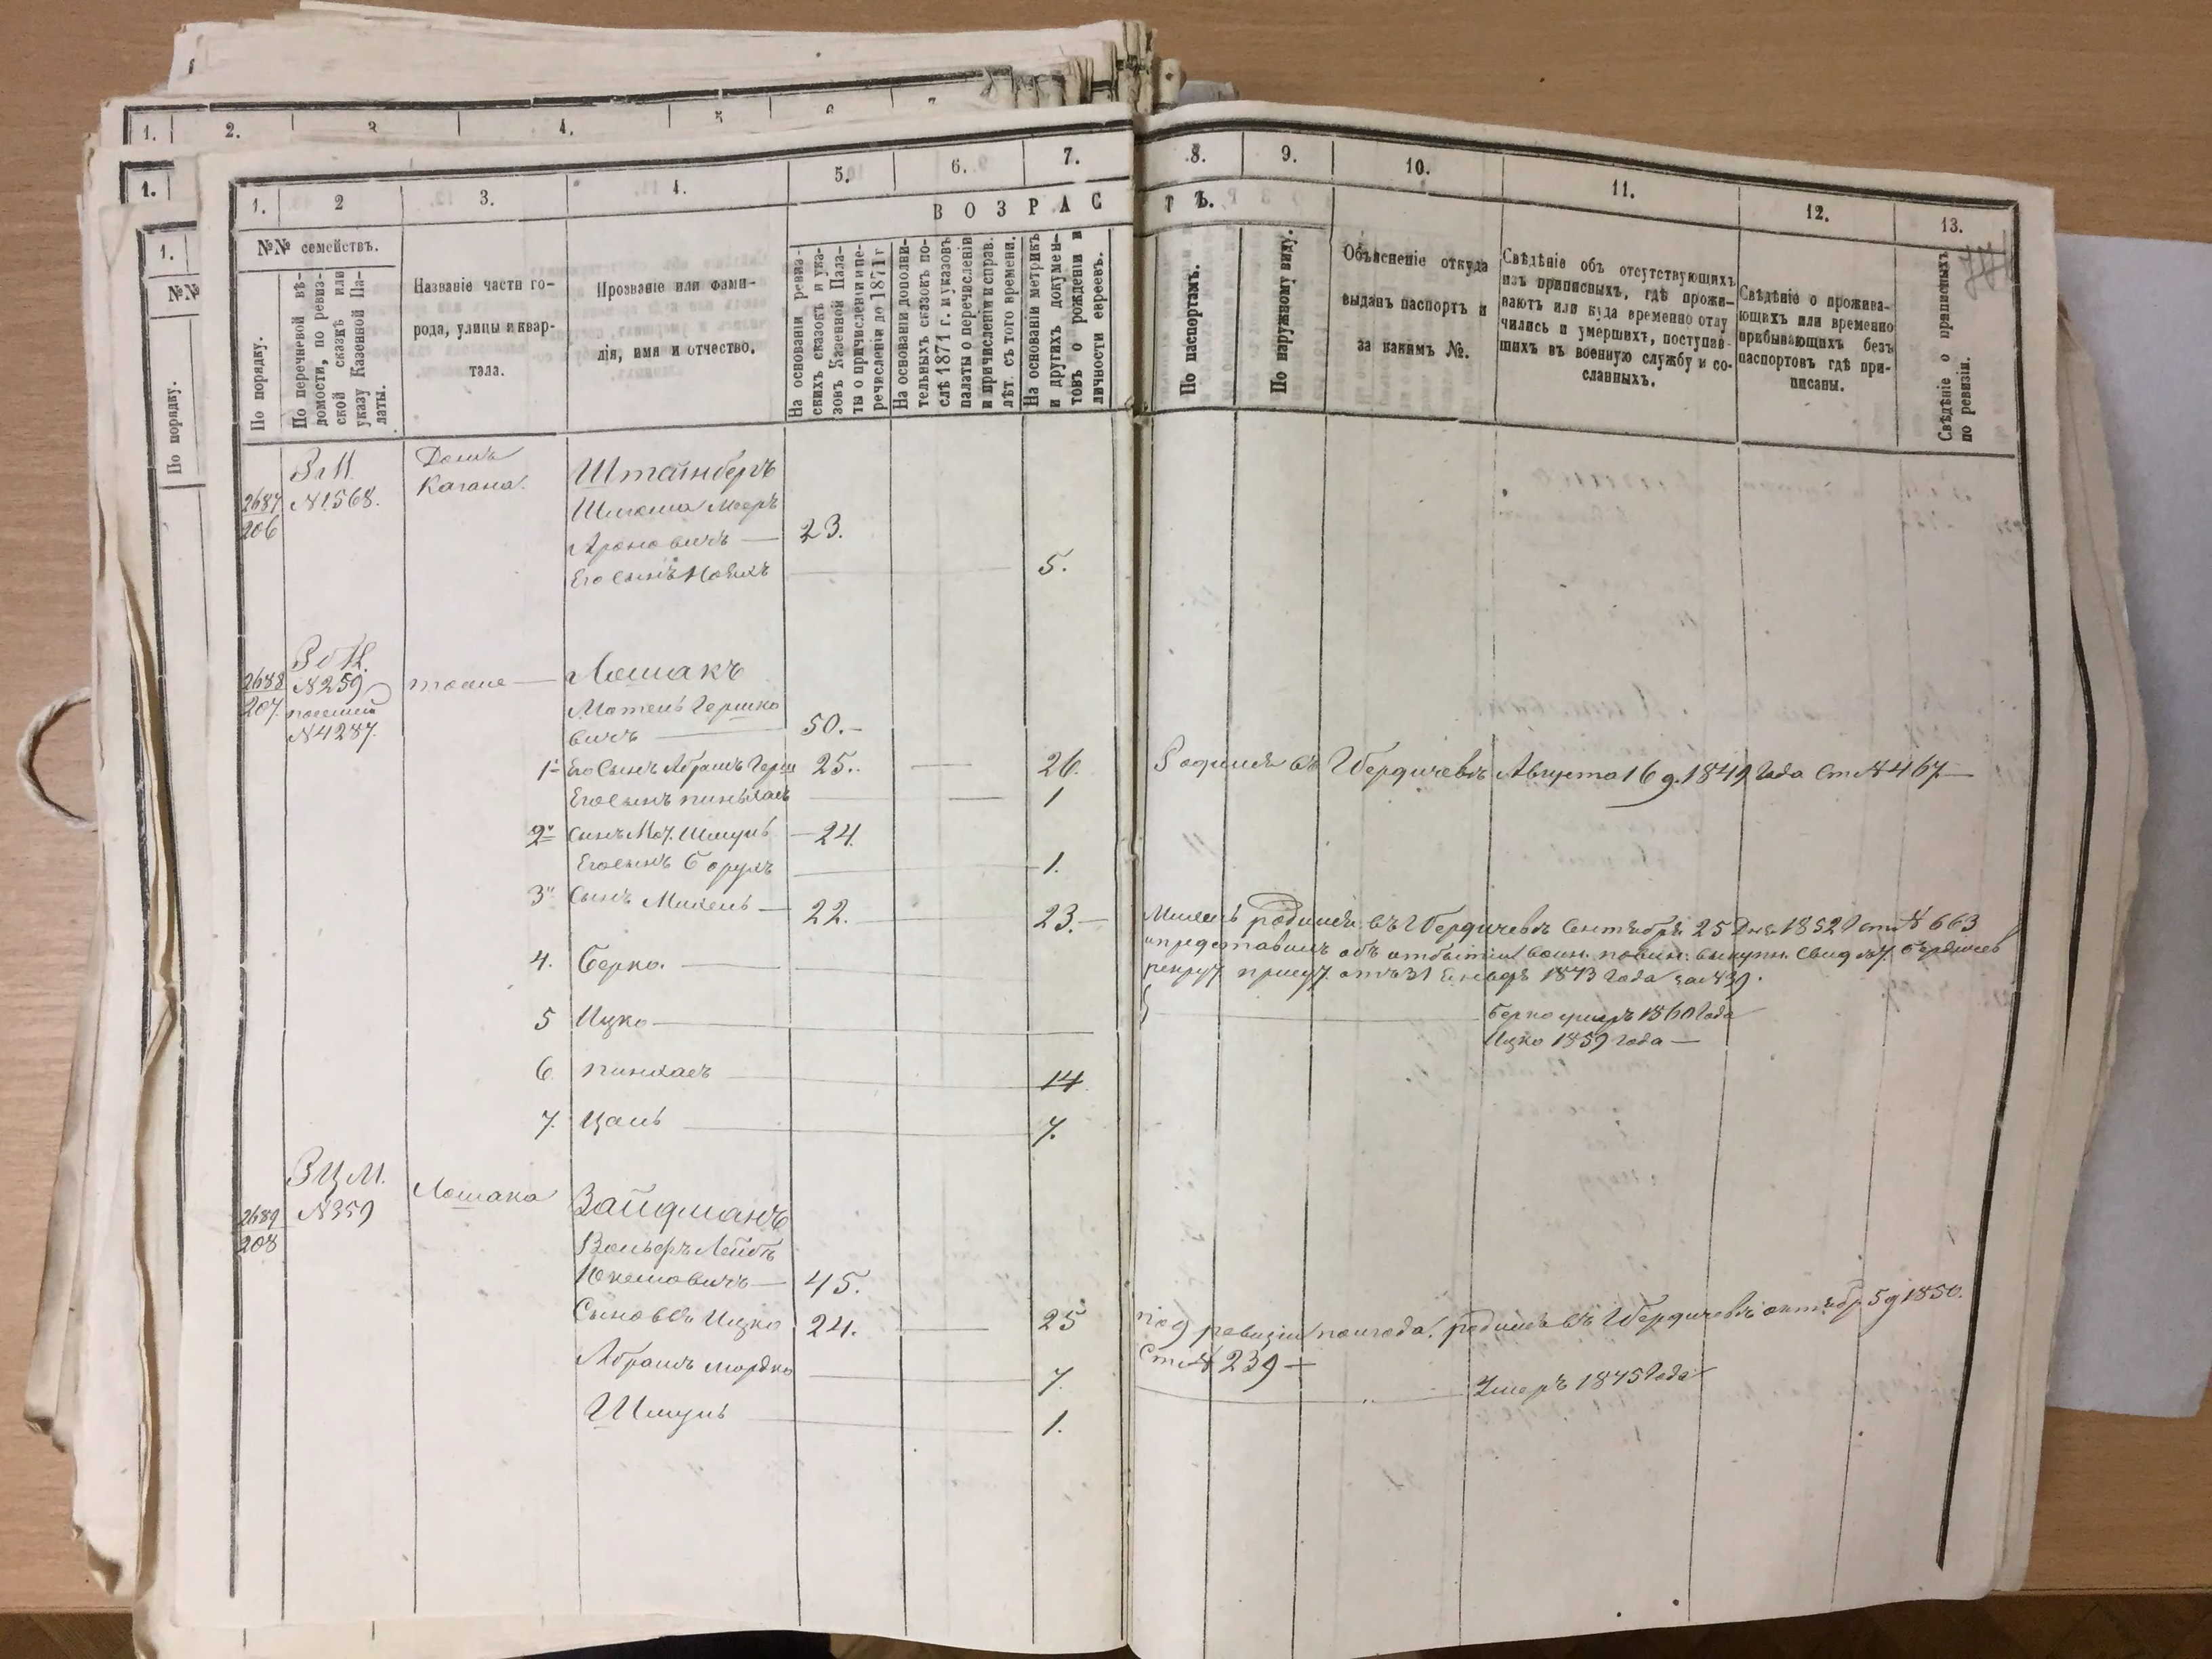 1.
2.
3.
4.
5
6
7
1.
1.
№№
По порядку.
1.
2
3.
4.
5.
6.
7.
8.
9.
10.
11.
12.
13.
№№ семействъ.
По порядку.
По перечневой вѣ-
домости, по ревиз-
ской сказкѣ или
указу Казенной Па-
латы.
Названіе части го-
рода, улицы и квар-
тала.
Прозваніе или фами-
лія, имя и отчество.
ВОЗРАСТЪ.
На основаніи ревиз-
скихъ сказокъ и ука-
зовъ Казенной Пала-
ты о причисленіи и пе-
речисленіи до 1871 г
На основаніи дополни-
тельныхъ сказокъ по-
слѣ 1871 г. и указовъ
палаты о перечисленіи
и причисленіи и справ.
лѣт. съ того времени.
На основаніи метрикъ
и другихъ докумен-
товъ о рожденіи и
личности евреевъ.
По паспортамъ.
По наружному виду.
Объясненіе откуда
выданъ паспортъ и
за какимъ №.
Свѣдѣніе объ отсутствующихъ
изъ приписныхъ, гдѣ прожи-
ваютъ или куда временно отлу
чились и умершихъ, поступав-
шихъ въ военную службу и со-
сланныхъ.
Свѣдѣніе о прожива-
ющихъ или временно
прибывающихъ безъ
паспортовъ гдѣ при-
писаны.
Свѣдѣніе о приписныхъ
по ревизіи.
2687
206
№1568.
Домъ
Кагана.
Штайнберъ
Шлема Мееръ
Ароновичъ — 23.
Его сынъ 5.
2688
207.
№259
№4287.
тоше —
Лошакъ
Мотель Гершко
вичъ — 50.-
1й Его сынъ Абрамъ Герш 25. — 26. Родился въ Г Бердичевѣ Августа 16 д. 1849 Года Ст №467 —
Его сынъ Пинхасъ — 1
2й сынъ Мот. Шмуль — 24.
Его сынъ Борухъ — 1.
3й сынъ Михель — 22. — 23.—
Михель родился въ Г Бердичевѣ Сентября 25 Дня 1852 Г ст № 663
представилъ объ отбытіи воин. повин. выкупн. Свид.
рекрут. присут. отъ 31 Генваря 1873 Года за №39.
4. Берко. —
5 Ицко —
Берко умеръ 1860 Года
Ицко 1859 года —
6 Пинхасъ — 14
7. Цаль — 7.
2689
208
ВЦМ.
№359
Лошака
Зайдманъ
Вольфъ Лейбъ
Юкелювичъ — 45.
Сыновья Ицко 24. — 25
по ревизіи полгода. родился въ Г Бердичевѣ октябр 5 д 1850.
Ст № 239 —
Абрамъ Мордко — 7. — Умеръ 1875 Года
Шмуль — 1.